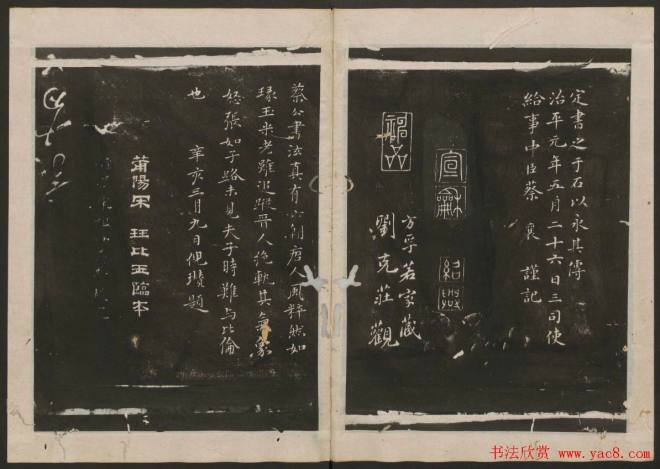 定書之于石以永其傳
治平元年五月二十六日三司使
給事中臣蔡襄謹記
宣龢
紹興
神品
方孚若家藏
劉克莊觀
蔡公書法真有六朝唐人風粹然如
琢玉米老雖追蹤晉人絶軌其氣象
怒張如子路未見夫子時難與比倫
也 辛亥三月九日倪瓚題
莆陽宋珏比玉臨本
书法欣赏 www.yac8.com